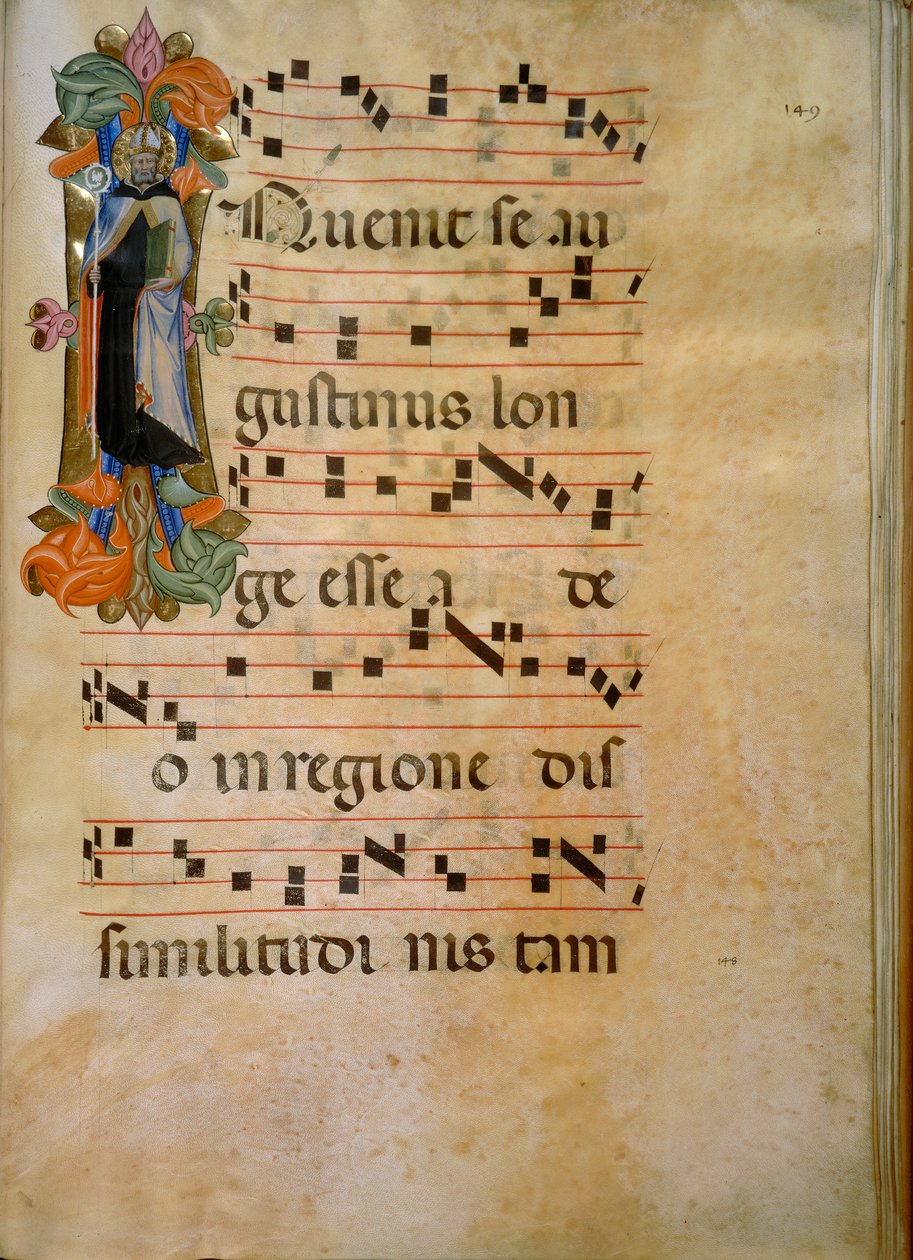 149
Inuenit se au
gustinus lon
ge esse a de
o in regione dis
similitudi nis tam
148